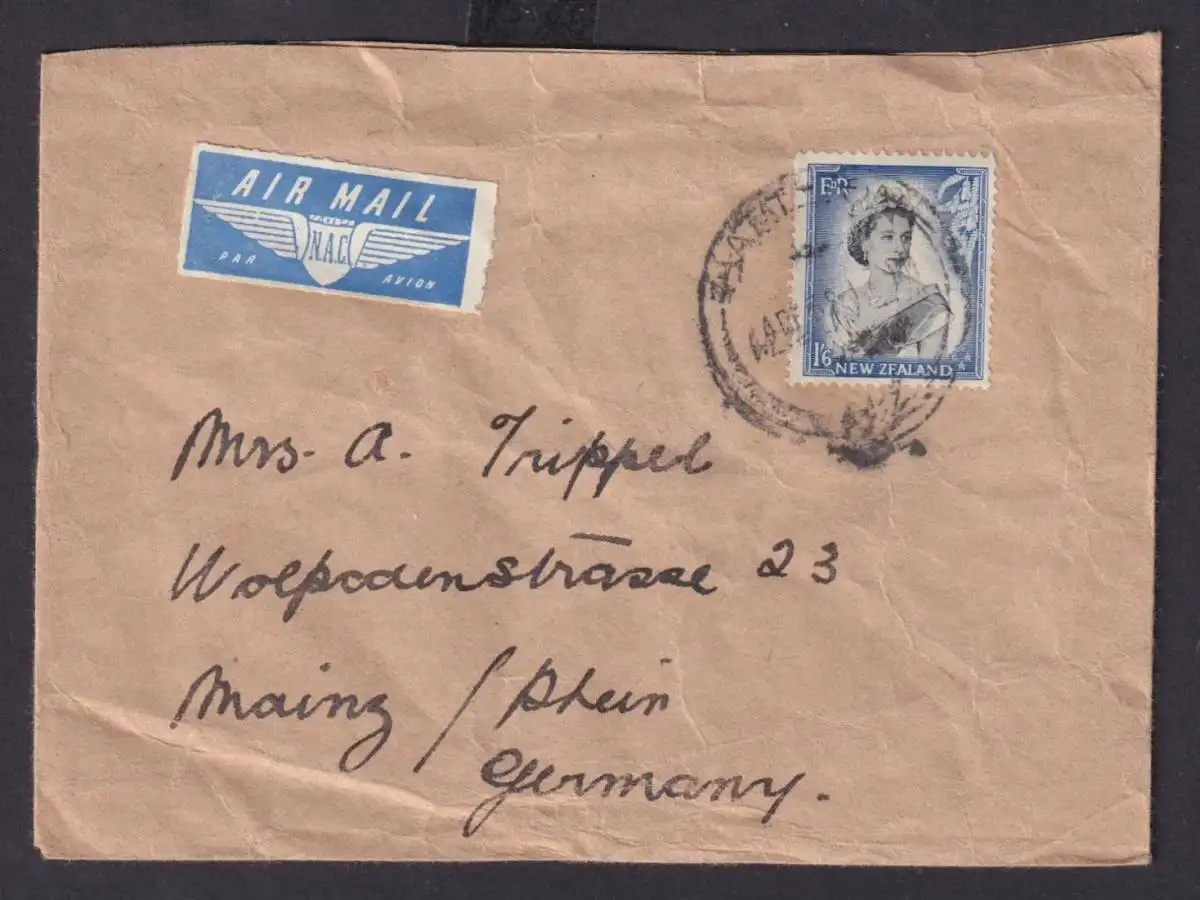 AIR MAIL
N.A.C.
PAR AVION
E II R
1/6
NEW ZEALAND
Mrs. A. Trippel
Wolpodenstrasse 23
Mainz / Rhein
Germany.